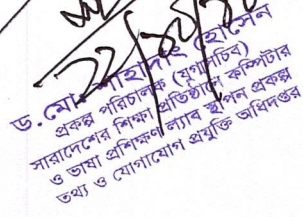 ২২/০১/
ড. মোঃ সাহাদাৎ হোসেন
প্রকল্প পরিচালক (যুগ্মসচিব)
সারাদেশের শিক্ষা প্রতিষ্ঠানে কম্পিউটার
ও ভাষা প্রশিক্ষণ ল্যাব স্থাপন প্রকল্প
তথ্য ও যোগাযোগ প্রযুক্তি অধিদপ্তর